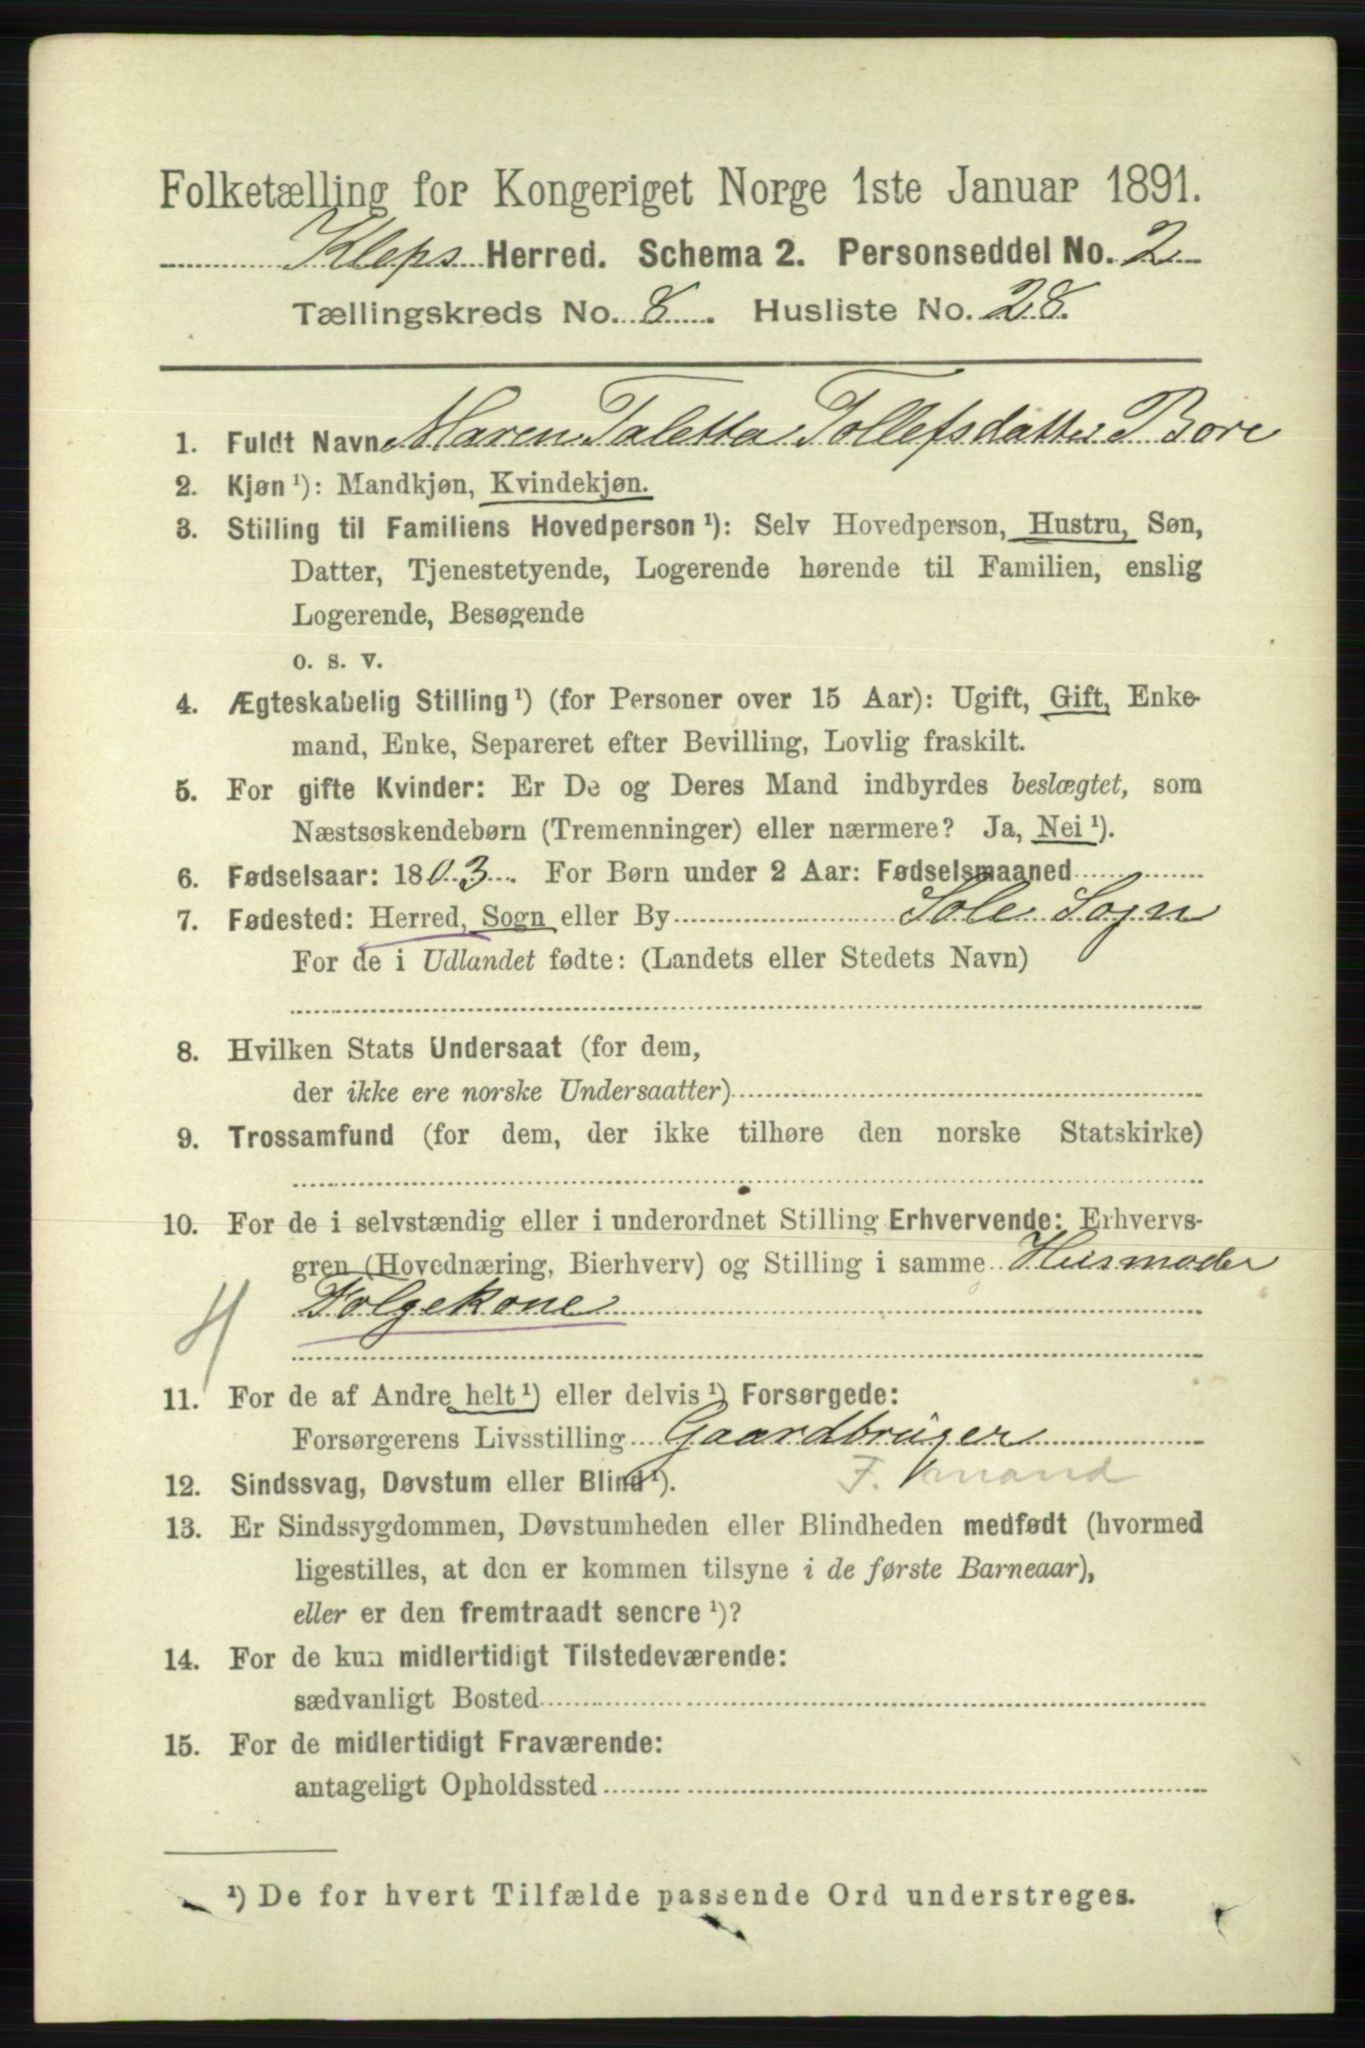 Folketælling for Kongeriget Norge 1ste Januar 1891.
Kleps Herred. Schema 2. Personseddel No. 2
Tællingskreds No. 8. Husliste No. 28.
1. Fuldt Navn Maren Taletta Tollefsdatter Bore
2. Kjøn ¹): Mandkjøn, Kvindekjøn.
3. Stilling til Familiens Hovedperson ¹): Selv Hovedperson, Hustru, Søn,
Datter, Tjenestetyende, Logerende hørende til Familien, enslig
Logerende, Besøgende
o. s. v.
4. Ægteskabelig Stilling ¹) (for Personer over 15 Aar): Ugift, Gift, Enke-
mand, Enke, Separeret efter Bevilling, Lovlig fraskilt.
5. For gifte Kvinder: Er De og Deres Mand indbyrdes beslægtet, som
Næstsøskendebørn (Tremenninger) eller nærmere? Ja, Nei ¹).
6. Fødselsaar: 1803. For Børn under 2 Aar: Fødselsmaaned
7. Fødested: Herred, Sogn eller By Sole Sogn
For de i Udlandet fødte: (Landets eller Stedets Navn)
8. Hvilken Stats Undersaat (for dem,
der ikke ere norske Undersaatter)
9. Trossamfund (for dem, der ikke tilhøre den norske Statskirke)
10. For de i selvstændig eller i underordnet Stilling Erhvervende: Erhvervs-
gren (Hovednæring, Bierhverv) og Stilling i samme Husmoder
Folgekone
11. For de af Andre helt ¹) eller delvis ¹) Forsørgede:
Forsørgerens Livsstilling Gaardbruger
F. mand
12. Sindssvag, Døvstum eller Blind ¹).
13. Er Sindssygdommen, Døvstumheden eller Blindheden medfødt (hvormed
ligestilles, at den er kommen tilsyne i de første Barneaar),
eller er den fremtraadt senere ¹)?
14. For de kun midlertidigt Tilstedeværende:
sædvanligt Bosted
15. For de midlertidigt Fraværende:
antageligt Opholdssted
¹) De for hvert Tilfælde passende Ord understreges.